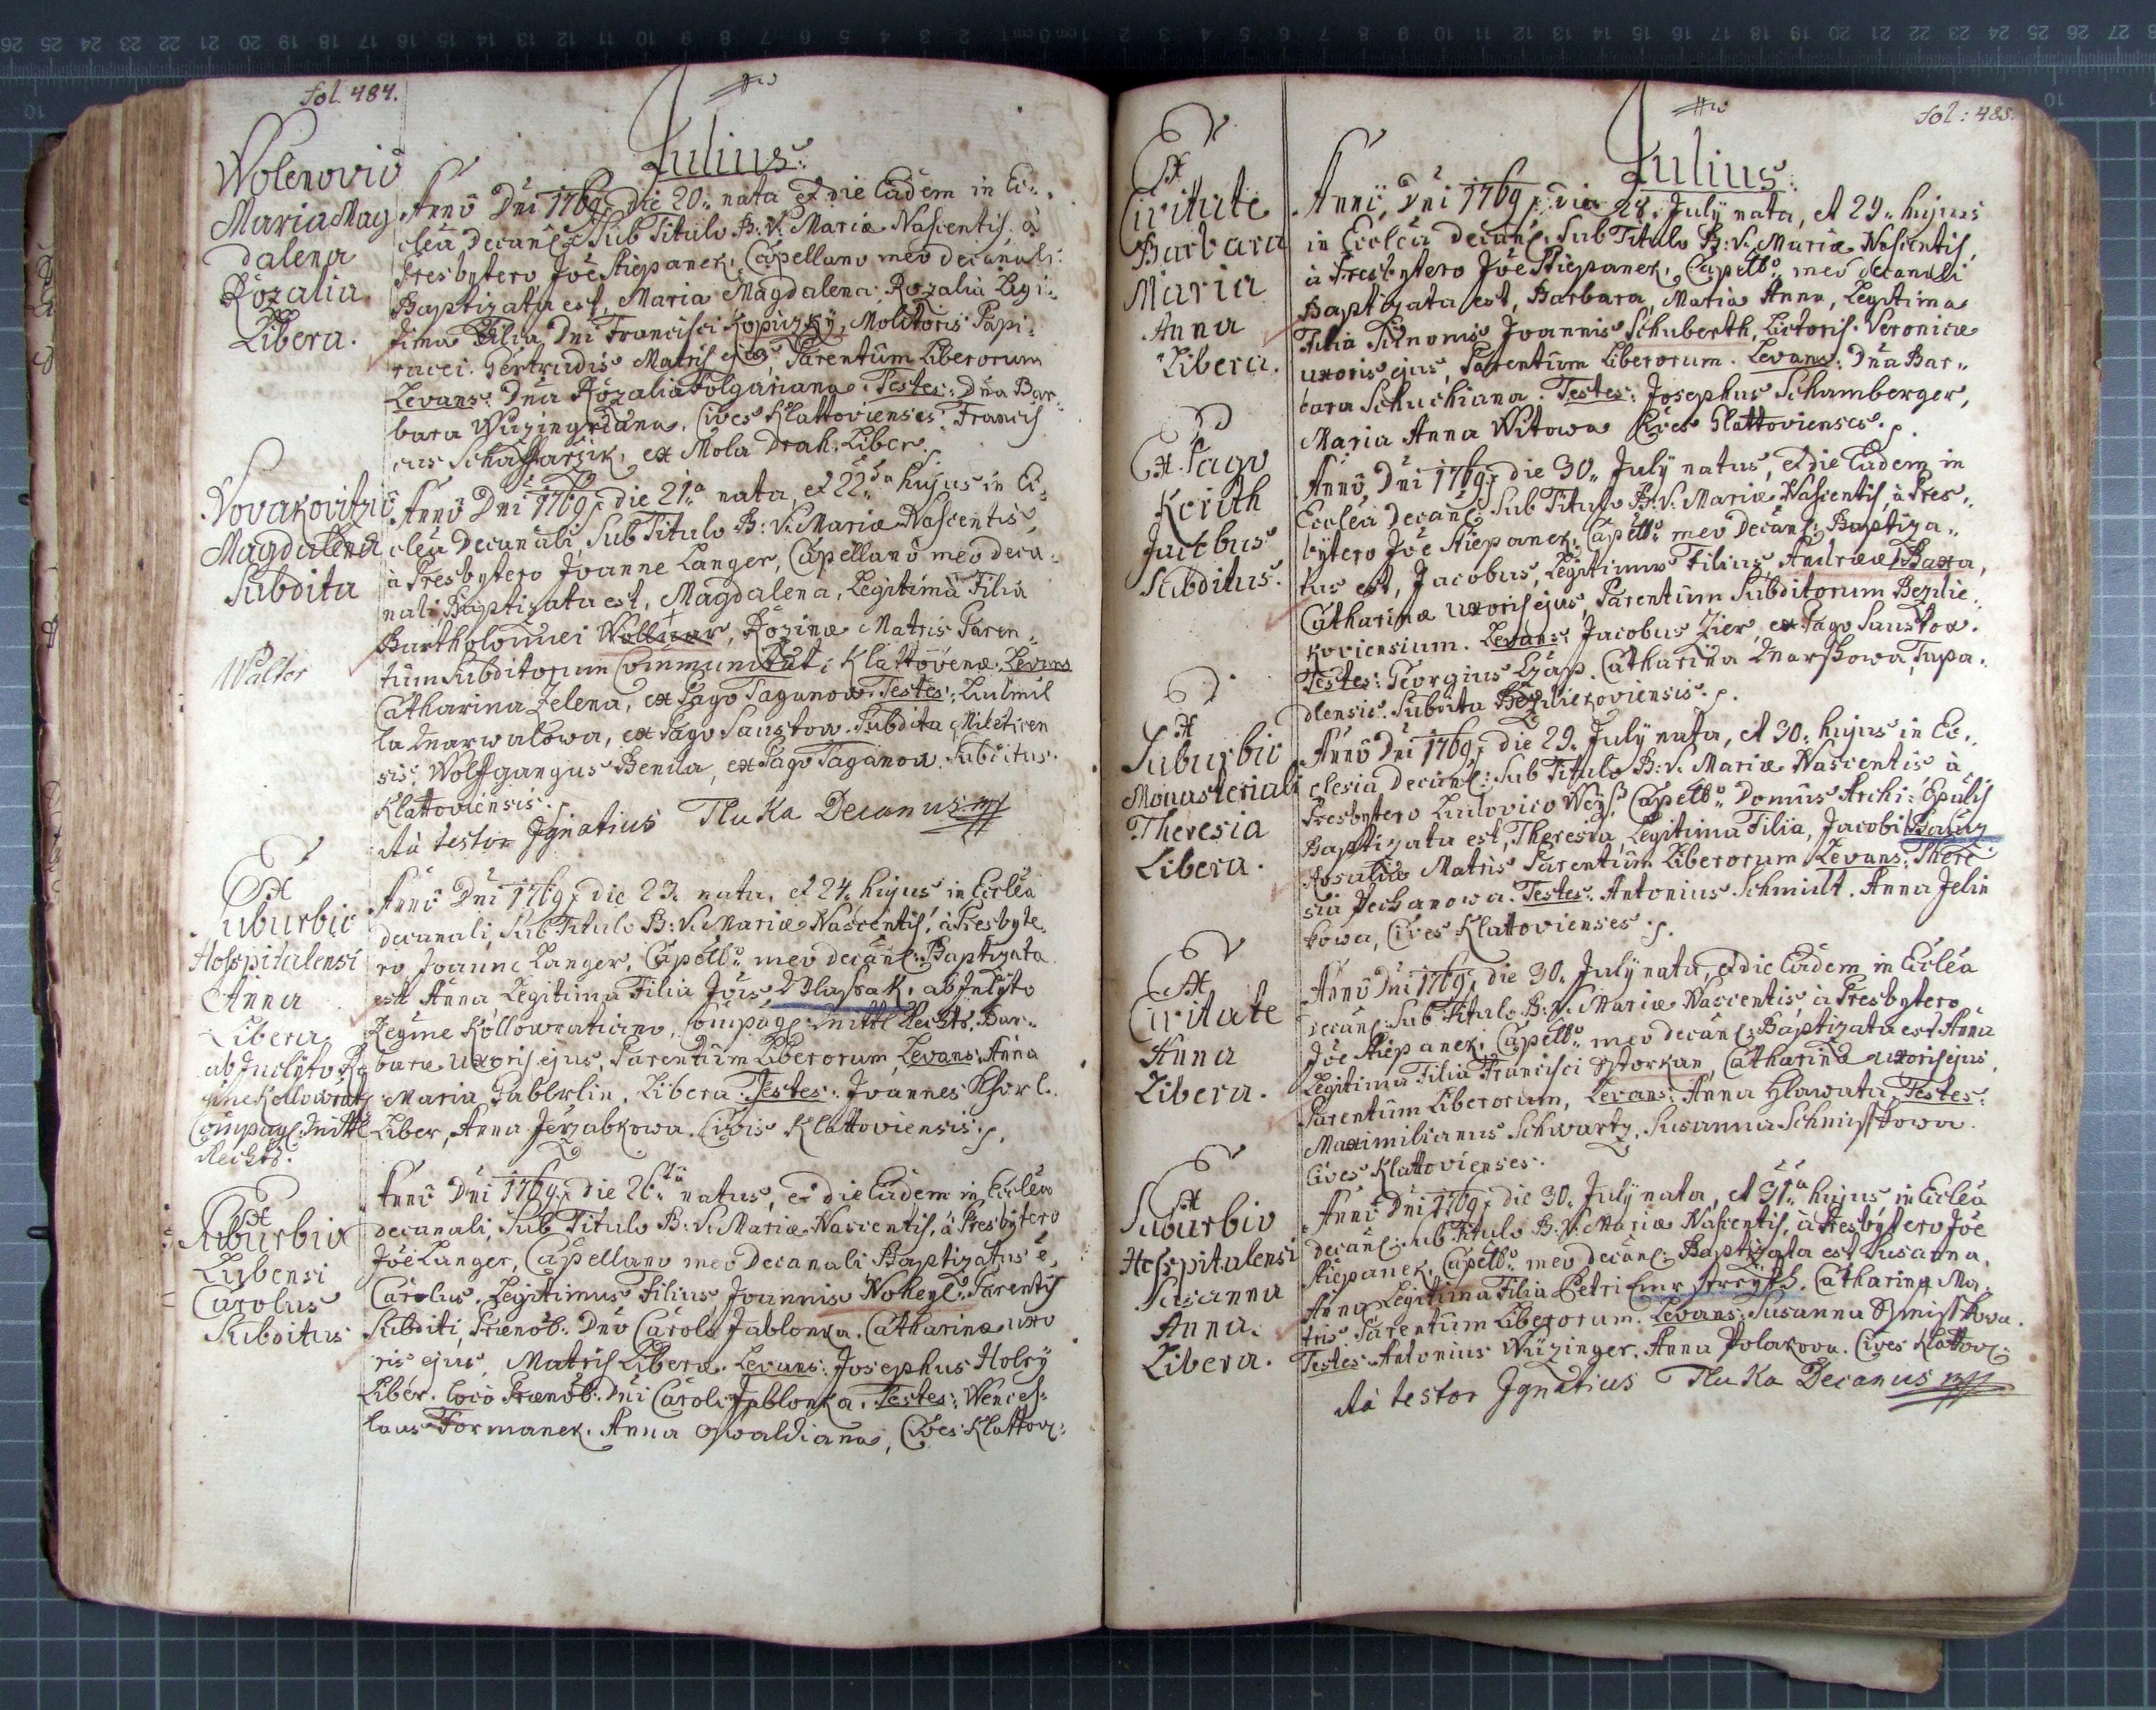 fol. 484.
Julius.
Wolenovic
Maria Mag
dalena
Rozalia
Libera.
Anno Dni 1769, die 20. nata et die Eadem in Ec:
cleâ Decanl: Sub Titulo B: V: Mariæ Nascentis. à
Presbytero Joe Stiepanek, Capellano meo decanali
Baptizata est, Maria Magdalena, Rozalia Legi:
tima Filia Dni Francisci Kopizky, Molitoris Papi:
racei. Gertrudis Matris ejus, Parentum Liberorum
Levans: Dna Rozalia Folgariana. Testes: Dna Bar:
bara Wüzingriana, Cives Klattovienses. Francis
cus Schaffarzik, ex Mola Drah: Liber.
Novakovitzio
Magdalena
Subdita
Walter
Anno Dni 1769, die 21a nata, et 22da hujus in Ec:
clea Decanali, Sub Titulo B: V: Mariæ Nascentis,
à Presbytero Joanne Langer, Capellano meo deca:
nali, Baptizata est, Magdalena, Legitima Filia
Bartholomei Wollnar, Rozinæ Matris Paren:
tum Subditorum Communitat: Klattovenæ. Levans
Catharina Zelena, ex Pago Taganow. Testes: Ludmil
la Marwalowa, ex Pago Saustow. Subdita Mileticen
sis, Wolffgangus Benda, ex Pago Taganow. Subditus
Klattoviensis.
Ita testor Ignatius Tluka Decanus mp
Ex
Suburbio
Hospitalensi
Anna
Libera
ab Inclyto Re
gime Kollowratz
Compag: Mittl
Rechts.
Anno Dni 1769, die 23. nata, et 24. hujus in Eccleâ
decanali, Sub Titulo B: V: Mariæ Nascentis, à Presbyte:
ro Joanne Langer, Capell: meo decanl: Baptizata
est Anna Legitima Filia Jois Wlassak, ab Inlyto
Regime Kollowratiano, Compag: Mittl Rechts. Bar:
baræ Uxoris ejus, Parentum Liberorum, Levans: Anna
Maria Gablerlin, Libera. Testes: Joannes Khorl.
Liber, Anna Jerzabkowa. Civis Klattoviensis.
Ex
Suburbio
Lubensi
Carolus
Subditus
Anno Dni 1769, die 26ta natus, et die Eadem in Eccleâ
decanali, Sub Titulo B: V: Mariæ Nascentis, à Presbytero
Joe Langer, Capellano meo Decanali Baptizatus e,
Carolus, Legitimus Filius Joannis Nokeyl. Parentis
Subditi, Prænob: Dno Carolo Jablonka. Catharinæ uxo
ris ejus, Matris Liberæ. Levans: Josephus Holey
Liber. loco Prænob: Dni Caroli Jablonka. Testes: Wences:
laus Formanek. Anna Oswaldiana, Cives Klattov:
fol: 485.
Julius.
Ex
Civitate
Barbara
Maria
Anna
Libera.
Anno Dni 1769, die 28. July nata, et 29. hujus
in Eccleâ decanl: Sub Titulo B: V: Mariæ Nascentis,
à Presbytero Joe Stiepanek, Capello meo decanali
Baptizata est, Barbara, Maria Anna, Legitima
Filia Joannis Schuberth, Lictoris. Veronicæ
uxoris ejus, Parentum Liberorum. Levans: Dna Bar:
bara Schuchiana. Testes: Josephus Schamberger,
Maria Anna Witowa Cives Glattovienses.
Ex Pago
Korith
Jacobus
Subditus.
Anno Dni 1769, die 30. July natus, et die Eadem in
Eccleâ Decanl: Sub Titulo B: V: Mariæ Nascentis, à Pres:
bytero Joe Stiepanek, Capello meo Decanl: Baptiza:
tus est, Jacobus, Legitimus Filius, Andreæ Baxa,
Catharinæ uxoris ejus, Parentum Subditorum Bezdie:
koviensium. Levans: Jacobus Zier, ex Pago Saustow.
Testes: Georgius Czap. Catharina Marssowa, Tupa:
dlensis. Subdita Bezdiekoviensis.
Ex
Suburbio
Monasteriali
Theresia
Libera.
Anno Dni 1769, die 29. July nata, et 30. hujus in Ec:
clesia Decanl: Sub Titulo B: V: Mariæ Nascentis à
Presbytero Ludovico Weyß Capello Domus Archi: Epalis
Baptizata est, Theresia, Legitima Filia, Jacobi Bauz
Rosaliæ Matris Parentum Liberorum. Levans: There
sia Pechanowa. Testes: Antonius Schmidt. Anna Jelin
kowa, Cives Klattovienses.
Ex
Civitate
Anna
Libera.
Anno Dni 1769, die 30. July nata, et die Eadem in Eccleâ
Decanl: Sub Titulo B: V: Mariæ Nascentis, à Presbytero
Joe Stiepanek, Capello meo decanl: Baptizata est Anna
Legitima Filia Francisci Storkan, Catharinæ uxoris ejus,
Parentum Liberorum, Levans: Anna Hlawata, Testes:
Maximilianus Schwartz, Susanna Schmisskowa.
Cives Klattovienses.
Ex
Suburbio
Hospitalensi
Susanna
Anna.
Libera.
Anno Dni 1769, die 30. July nata, et 31a hujus in Eccleâ
decanl: Sub Titulo B: V: Mariæ Nascentis, à Presbytero Joe
Stiepanek, Capello meo decanl: Baptizata est Susanna,
Anna Legitima Filia Petri Catharinæ Ma:
tris Parentum Liberorum. Levans: Susanna Smisskowa.
Testes Antonius Wüzinger. Anna Polakova. Cives Klattov:
Ita testor Ignatius Tluka Decanus mp